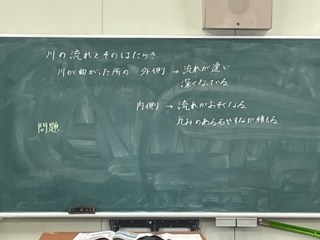 川の流れとそのはたらき
川が曲がった所の 外側 → 流れが速い
深くなっている
内側 → 流れがおそくなる
丸みのある石やすなが積もる
問題